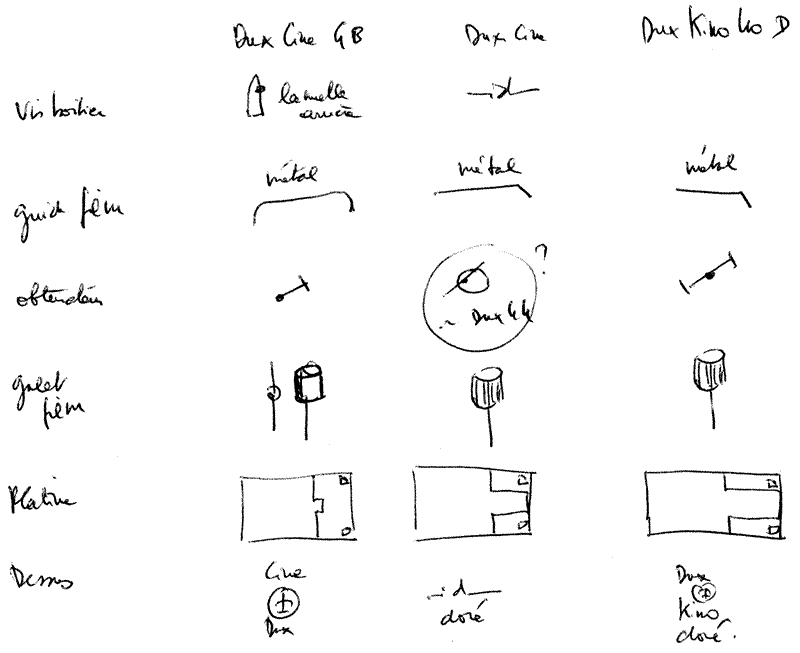 Dux Cine GB
Dux Cine
Dux Kino 40 D
Vis boitier
lamelle
arrière
-id-
guide film
métal
métal
métal
obturateur
?
~ Dux 44
galet
film
Platine
Dessus
Cine
Dux
-id-
doré
Dux
Kino
doré.